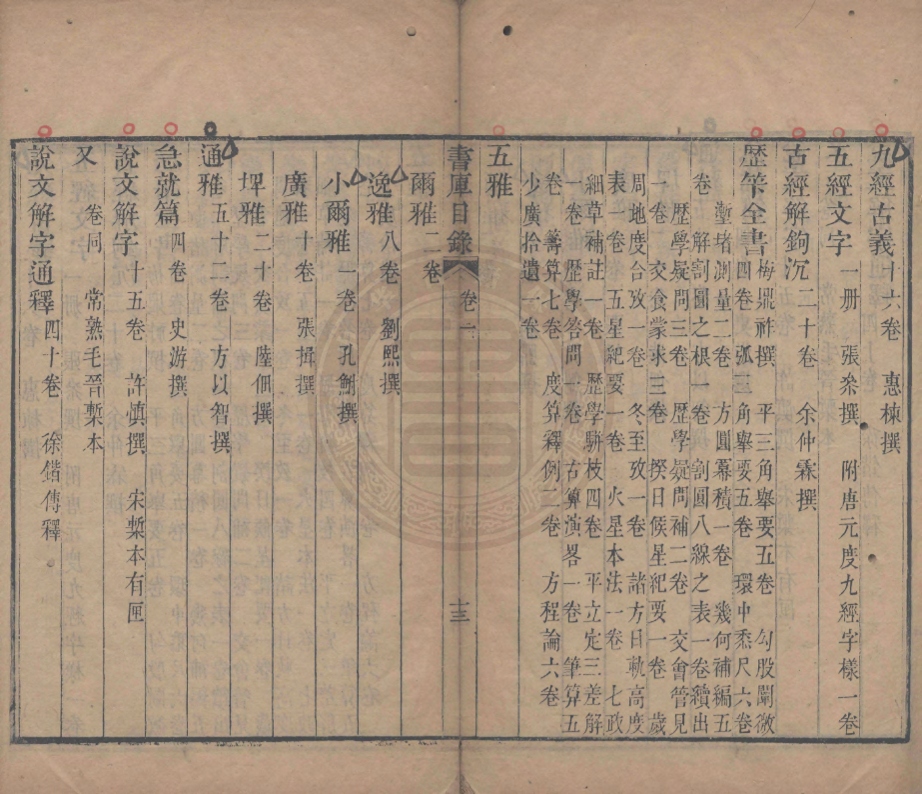 九經古義十六卷　惠棟撰
五經文字一册　張參撰　附唐元度九經字樣一卷
古經解鉤沉二十卷　余仲霖撰
歷筭全書梅鼎祚撰　平三角舉要五卷　勾股闡微
四卷　弧三角舉要五卷　環中黍尺六卷
塹堵測量二卷　方圓冪積一卷　幾何補編五
卷　解割圓之根一卷　割圓八線之表一卷續出
歷學疑問三卷　歷學疑問補二卷　交會管見
一卷　交食蒙求三卷　揆日候星紀要一卷　歲
周地度合攷一卷　冬至攷一卷　諮方日軌高度
表一卷　五星紀要一卷　火星本法一卷　七政
細草補註一卷　歷學騈枝四卷　平立定三差解
一卷　歷學答問一卷　古算演畧一卷　筆算五
卷　籌算七卷　度算釋例二卷　方程論六卷
少廣拾遺一卷
五雅
書庫目錄　卷一　十三
爾雅二卷
逸雅八卷　劉熙撰
小爾雅一卷　孔鮒撰
廣雅十卷　張揖撰
埤雅二十卷　陸佃撰
通雅五十二卷　方以智撰
急就篇四卷　史游撰
說文解字十五卷　許慎撰　宋槧本有匣
又　卷同　常熟毛晉槧本
說文解字通釋四十卷　徐鍇傳釋